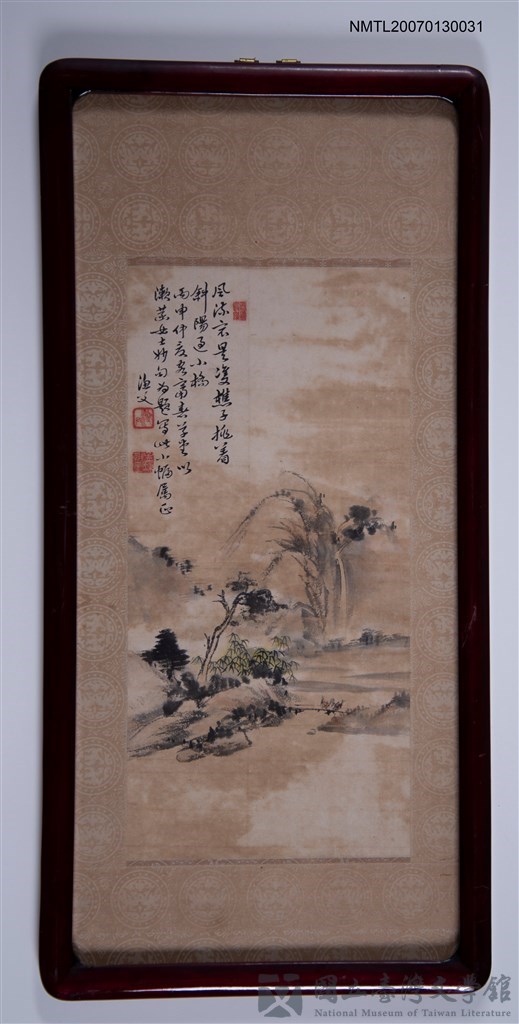 NMTL20070130031
風流是雙樵子挑著
斜陽過小橋
丙申仲夏客富春草堂以
漱菡女士妙句為題寫此小幅属正
漁
國立臺灣文學館
National Museum of Taiwan Literature